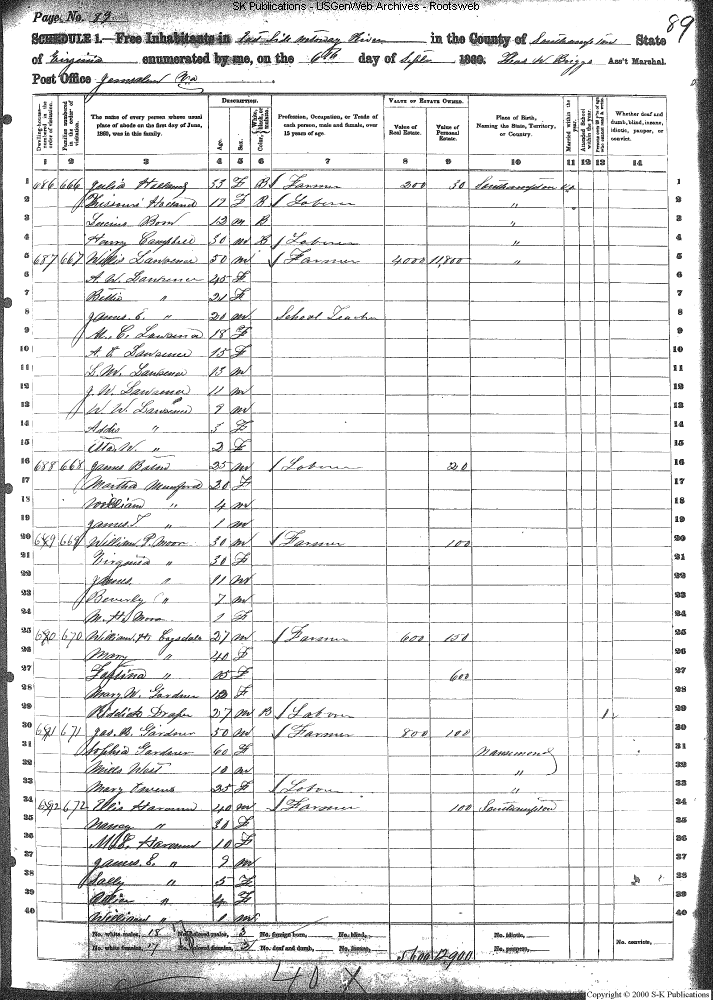 SK Publications - USGenWeb Archives - Rootsweb
Page No. 89
89
SCHEDULE 1.—Free Inhabitants in East Side Nottoway River in the County of Southampton State
of Virginia enumerated by me, on the 6th day of Septr 1860. Thos W Briggs Ass't Marshal.
Post Office Jerusalem Va
Dwelling-houses— numbered in the order of visitation.
Families numbered in the order of visitation.
The name of every person whose usual place of abode on the first day of June, 1860, was in this family.
DESCRIPTION.
Age.
Sex.
Color, White, black, or mulatto.
Profession, Occupation, or Trade of each person, male and female, over 15 years of age.
VALUE OF ESTATE OWNED.
Value of Real Estate.
Value of Personal Estate.
Place of Birth, Naming the State, Territory, or Country.
Married within the year.
Attended School within the year.
Whether deaf and dumb, blind, insane, idiotic, pauper, or convict.
1 2 3 4 5 6 7 8 9 10 11 12 13 14
1 686 666 Julia 33 F B Farmer 200 30 Southampton Va 1
2 17 F B Laborer " 2
3 12 m B " 3
4 Harry Campbell 50 m B Laborer " 4
5 687 667 Willis Lawrence 50 m Farmer 4000 11,800 " 5
6 A. W. Lawrence 45 F 6
7 Bettie " 21 F 7
8 James E. " 20 m School Teacher 8
9 M. C. Lawrence 18 F 9
10 Lawrence 15 F 10
11 Lawrence 13 m 11
12 J. W. Lawrence 11 m 12
13 W. W. Lawrence 9 m 13
14 Addie " 5 F 14
15 W. " 2 F 15
16 688 668 James 25 m Laborer 20 16
17 Martha Mumford 20 F 17
18 William " 4 m 18
19 James T. " 1 m 19
20 689 669 William P. Moore 30 m Farmer 100 20
21 Virginia " 30 F 21
22 James " 11 m 22
23 Beverly " 7 m 23
24 M. H. Moore 1 F 24
25 690 670 William H. 27 m Farmer 600 150 25
26 Mary " 40 F 26
27 " F 600 27
28 Mary W. Gardner 12 F 28
29 Riddick Draper 27 m B Laborer 1 29
30 691 671 Jas. R. Gardner 50 m Farmer 800 100 30
31 Sophia Gardner 60 F Nansemond 31
32 Mills West 10 m " 32
33 Mary 25 F Laborer " 33
34 692 672 40 m Farmer 100 Southampton 34
35 " 30 F 35
36 10 F 36
37 James E. " 9 m 37
38 Sally " 5 F 38
39 " 4 F 39
40 William " 1 m 40
No. white males, 18 No. colored males, 3 No. foreign born, No. blind, No. idiotic, No. convicts,
No. white females, 17 No. colored females, 2 No. deaf and dumb, No. insane, 5600 12,900 No. paupers,
40 X
Copyright © 2000 S-K Publications